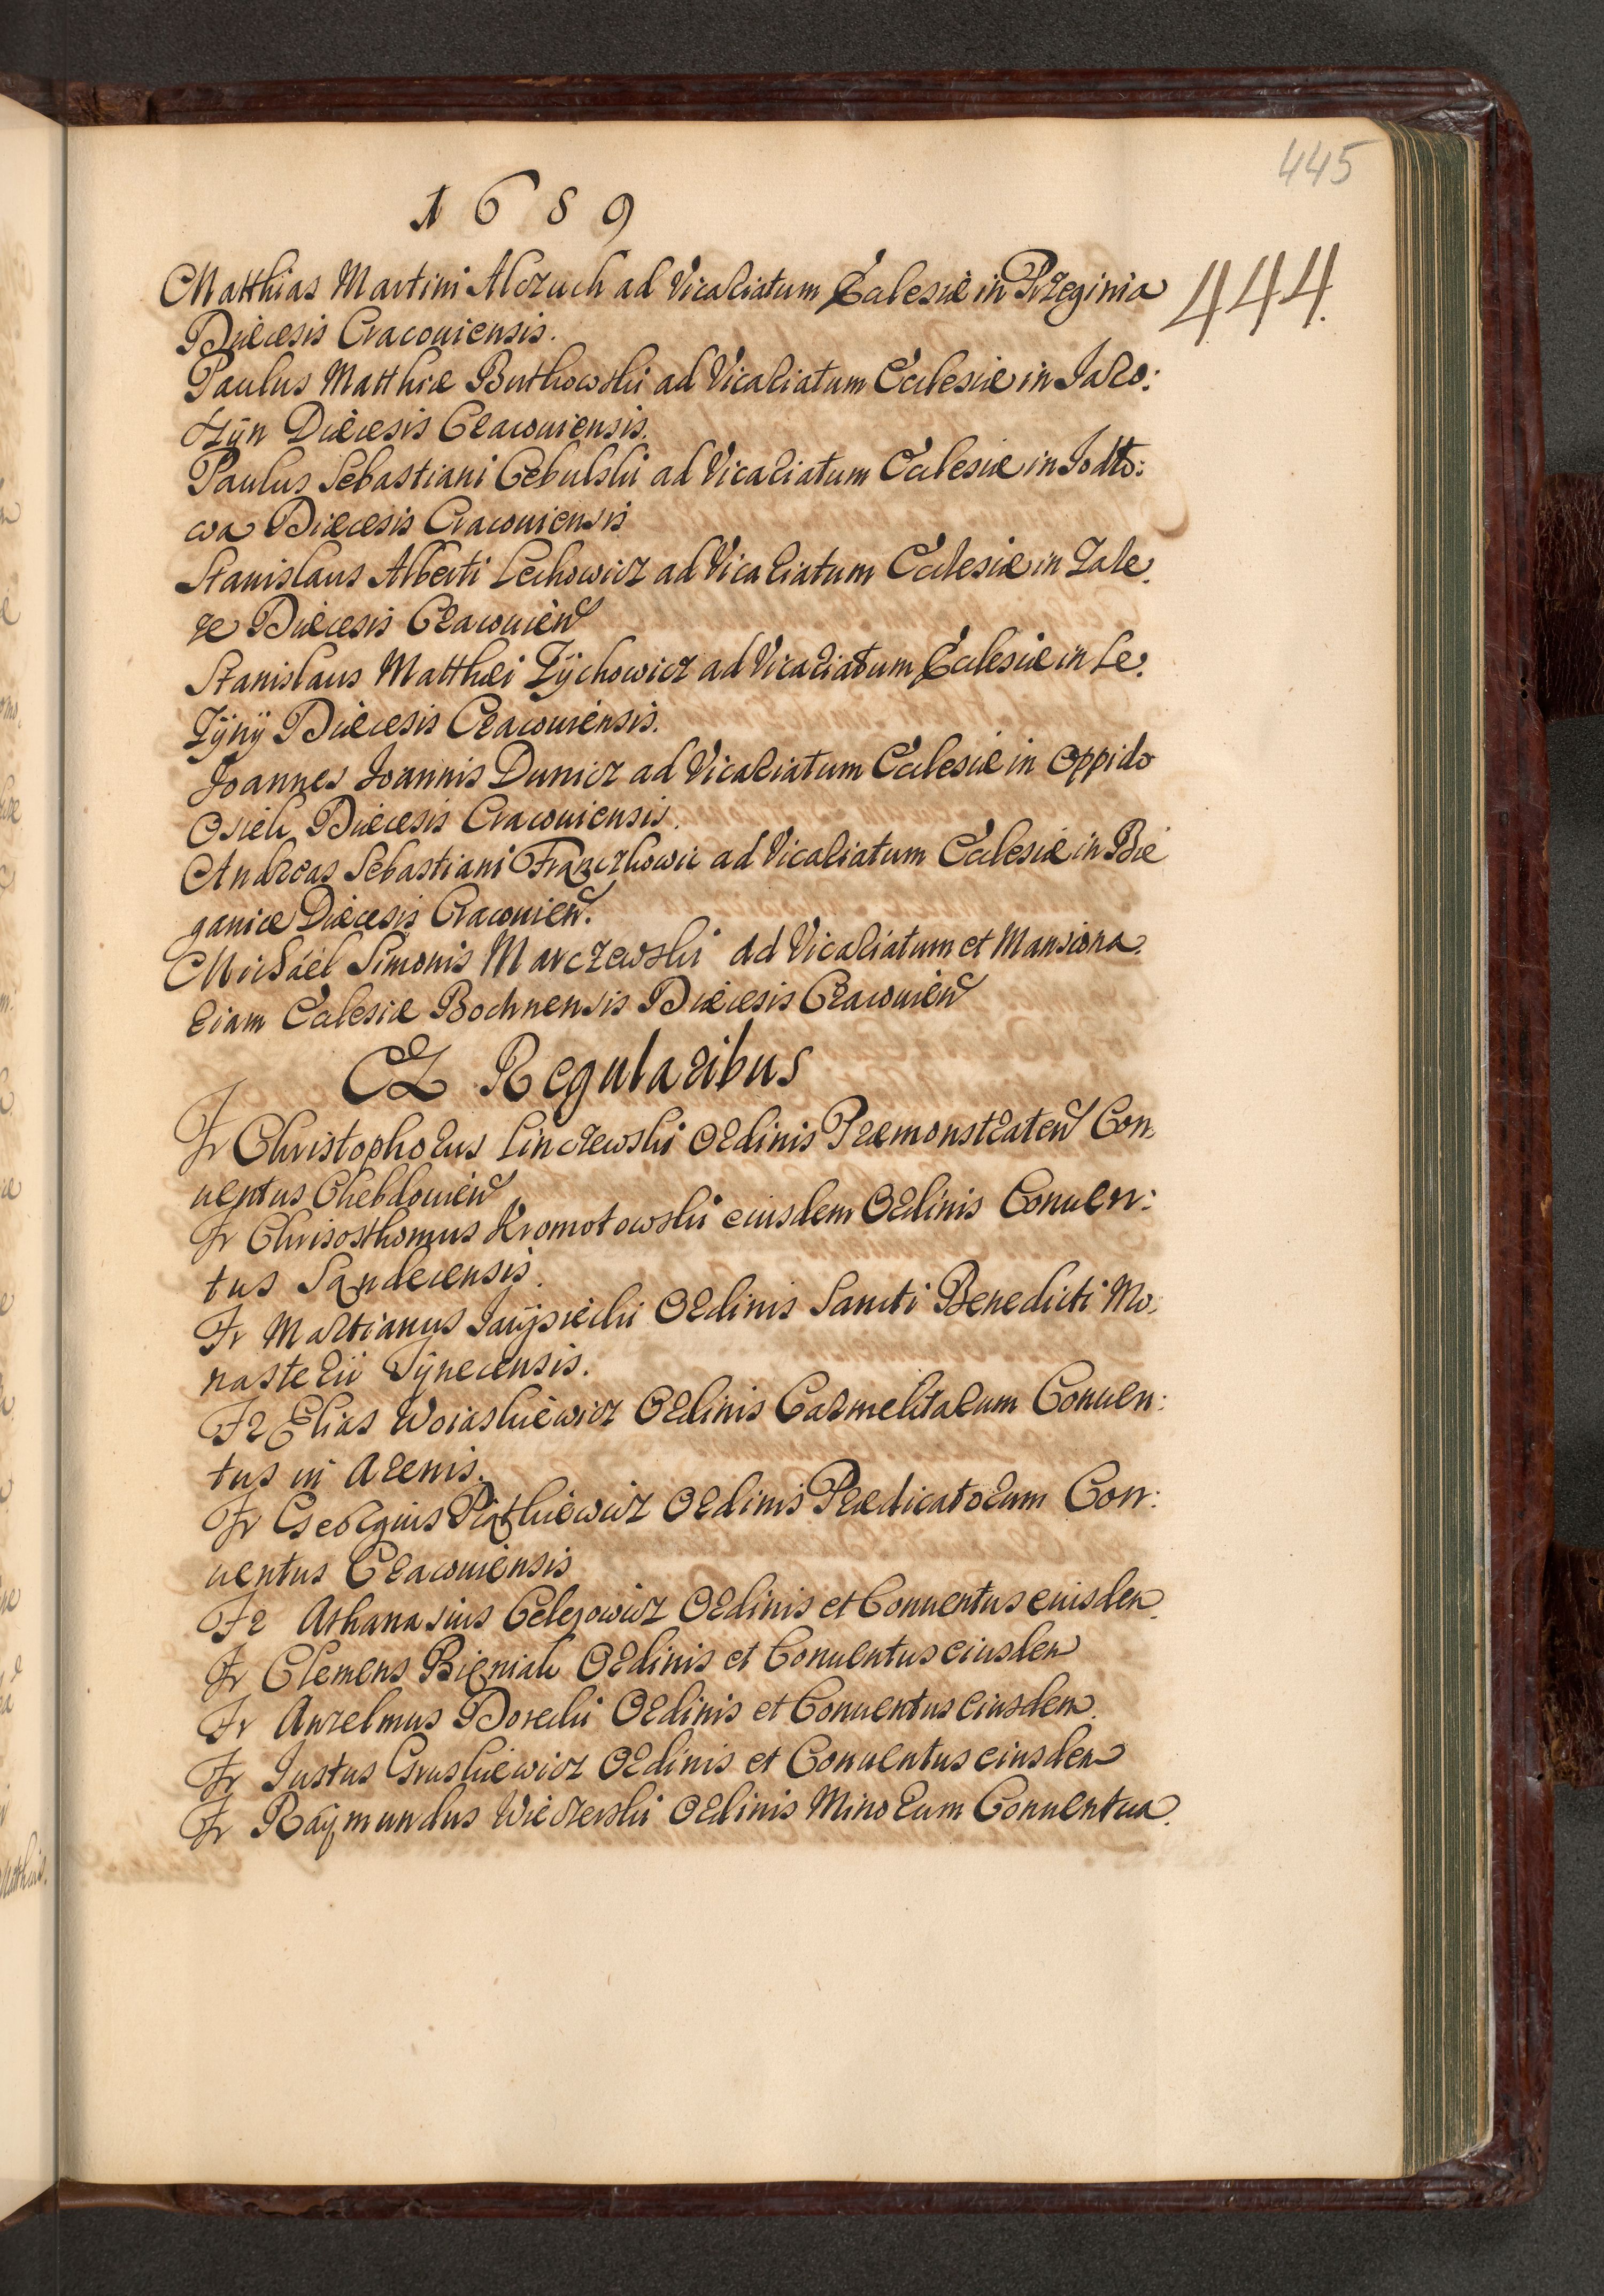 445
1689
444.
Matthias Martini Alczuch ad Vicariatum Ecclesiæ in Przeginia
Diæcesis Cracouiensis.
Paulus Matthiæ Buthowski ad Vicariatum Ecclesiæ in Jaro:
szÿn Diæcesis Cracouiensis.
Paulus Sebastiani Cebulski ad Vicariatum Ecclesiæ in Jodło:
wa Diæcesis Cracouiensis
Stanislaus Alberti Lechowicz ad Vicariatum Ecclesiæ in Zale.
ze Diæcesis Cracouien
Stanislaus Matthæi Zÿchowicz ad Vicariatum Ecclesiæ in Le.
Zÿnÿ Diæcesis Cracouiensis.
Joannes Joannis Dunicz ad Vicariatum Ecclesiæ in Oppido
Osiek Diæcesis Cracouiensis.
Andreas Sebastiani Franczkowic ad Vicariatum Ecclesiæ in Bie
ganice Diæcesis Cracouien.
Michael Simonis Marczewski ad Vicariatum et Mansiona.
riam Ecclesiæ Bochnensis Diæcesis Cracouien
Ex Regularibus
Fr Christophorus Linczewski Ordinis Præmonstraten Con.
uentus Chebdouien
Fr Chrisosthomus Kromotowski eiusdem Ordinis Conuen:
tus Sandecensis.
Fr Martianus Ordinis Sancti Benedicti Mo.
nasterii Tÿnecensis.
Fr Elias Woiaskiewicz Ordinis Carmelitarum Conuen:
tus in Arenis.
Fr Georgius Piątkiewicz Ordinis Prædicatorum Con:
uentus Cracouiensis
Fr Athanasius Celejowicz Ordinis et Conuentus eiusdem.
Fr Clemens Bieniak Ordinis et Conuentus eiusdem
Fr Anzelmus Borecki Ordinis et Conuentus eiusdem.
Fr Justus Gruskiewicz Ordinis et Conuentus eiusdem
Fr Raÿmundus Wieczerski Ordinis Minorum Conuentua.